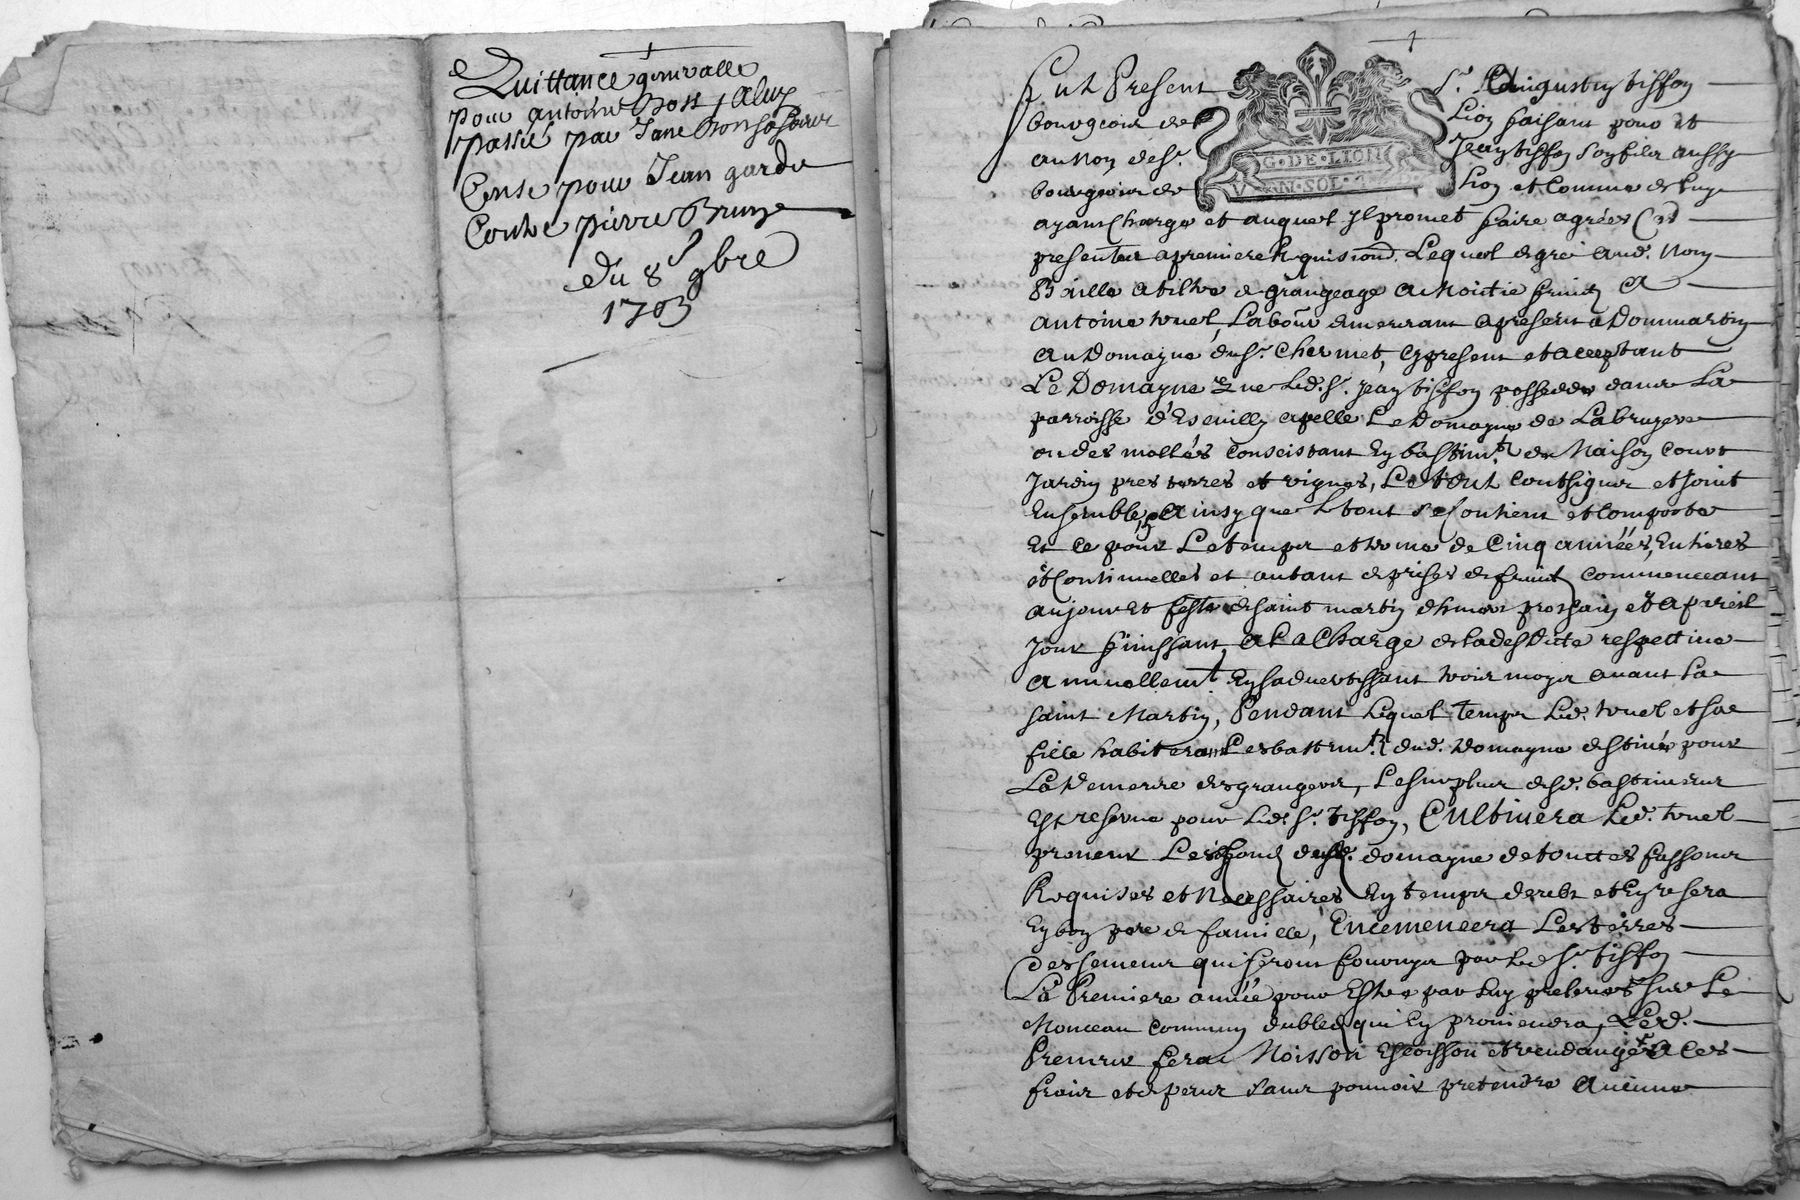 Quittance generalle
pour antoine
passé par
Cense pour Jean garde
Contre pierre Brun
du 8e 9bre
1703
Fut Present Sr. tiffon
bourgeois de Lion faisant pour et
au Nom de Sr. Jean tiffon son fils aussy
bourgeois de Lion et Comme de luy
G·DE·LION
ayant Charge et auquel Il promet faire agréer Ces
presentes a premiere Requision. Lequel de gré aud. Nom
Baille a tiltre de grangeage a Moitie fruits A
antoine truel Labour. demeurant a present a Dommartin
au Domayne du Sr. Chermet, cy present et acceptant
Le Domayne que led. Sr. Jean tiffon possedde dans La
parroisse d'Eseuilly apellé Le Domayne de Labruyere
ou des mollés conscistant En bastimts. de Maison Court
Jardin pres terres et vignes, Le tout contigus et Joint
Ensemble, Ainsy que le tout se Contient et Comporte
Et Ce pour Le temps et terme de Cinq années, Entieres
et Continuelles et autant de prises de fruits commenceant
au jour Et feste de saint martin dhiver prochain et a pareil
Jour finissant, A La Charge de la desdicte respettive
annuellemt. En sadvertissant trois moys avant La
saint Martin, Pendant Lequel temps Led. truel et sa
fille habiteront Les bastimts. dud. Domayne destinés pour
La Demeure des grangers, Le surplus desd. bastiments
Est reservé pour Led. Sr. tiffon, Cultivera Led. truel
preneur Les fonds dud. domayne de touttes fassons
Requises et Necessaires En temps deubt et En usera
En bon pere de famille, Encemencera Les terres
des semens qui seront fournys par Led Sr. tiffon
La Premiere année pour Estre par Luy prelevés sur Le
Monceau commun du bled qui En proviendra, Led.
Preneur fera Moisson et vendanges a ces
frais et despens sans pouvoir pretendre aucune